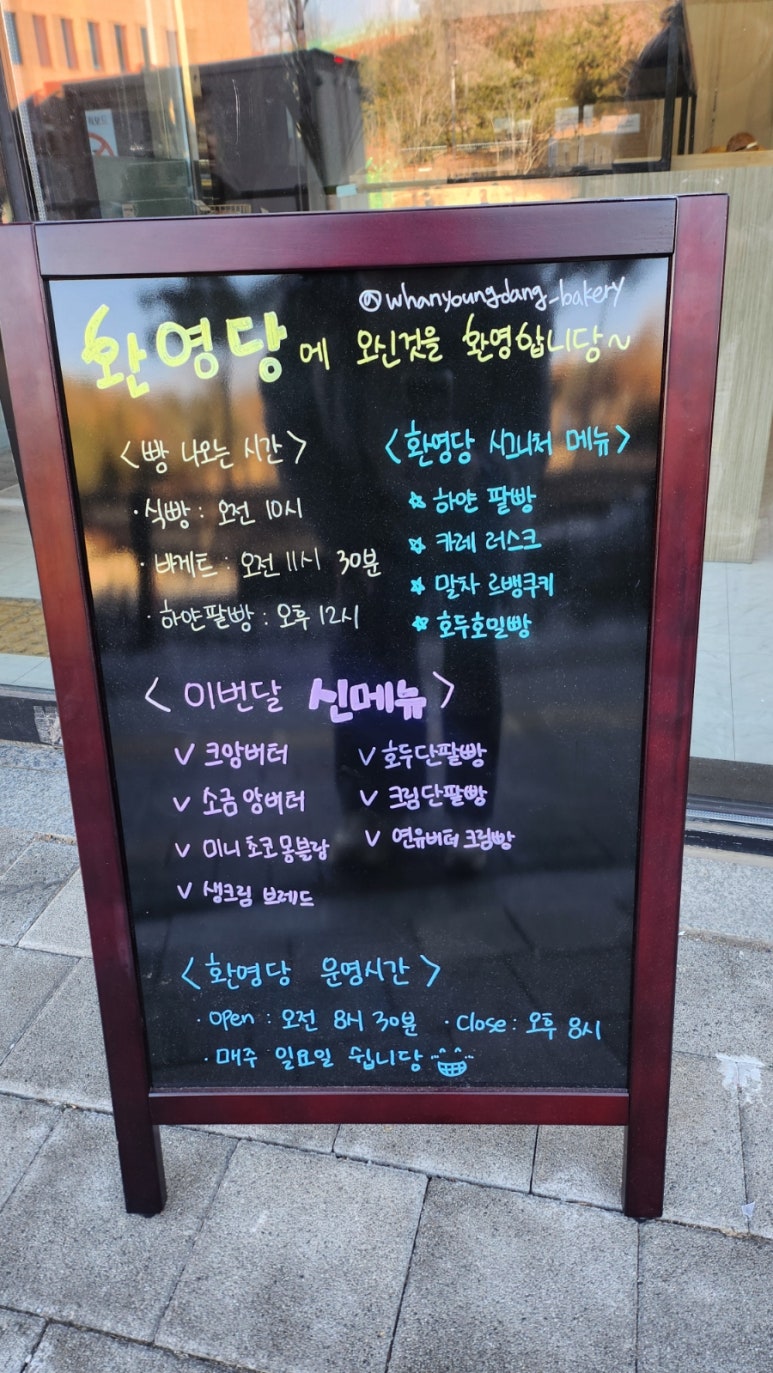 @whanyoungdang_bakery
환영당에 오신것을 환영합니당~
<빵 나오는 시간>
· 식빵 : 오전 10시
· 바게트 : 오전 11시 30분
· 하얀팥빵 : 오후 12시
<환영당 시그니처 메뉴>
☆ 하얀 팥빵
☆ 카레 러스크
☆ 말차 르뱅쿠키
☆ 호두호밀빵
<이번달 신메뉴>
✓ 크앙버터
✓ 소금 앙버터
✓ 미니 쵸코 몽블랑
✓ 생크림 브레드
✓ 호두단팥빵
✓ 크림단팥빵
✓ 연유버터 크림빵
<환영당 운영시간>
· open : 오전 8시 30분 · close : 오후 8시
· 매주 일요일 쉽니당